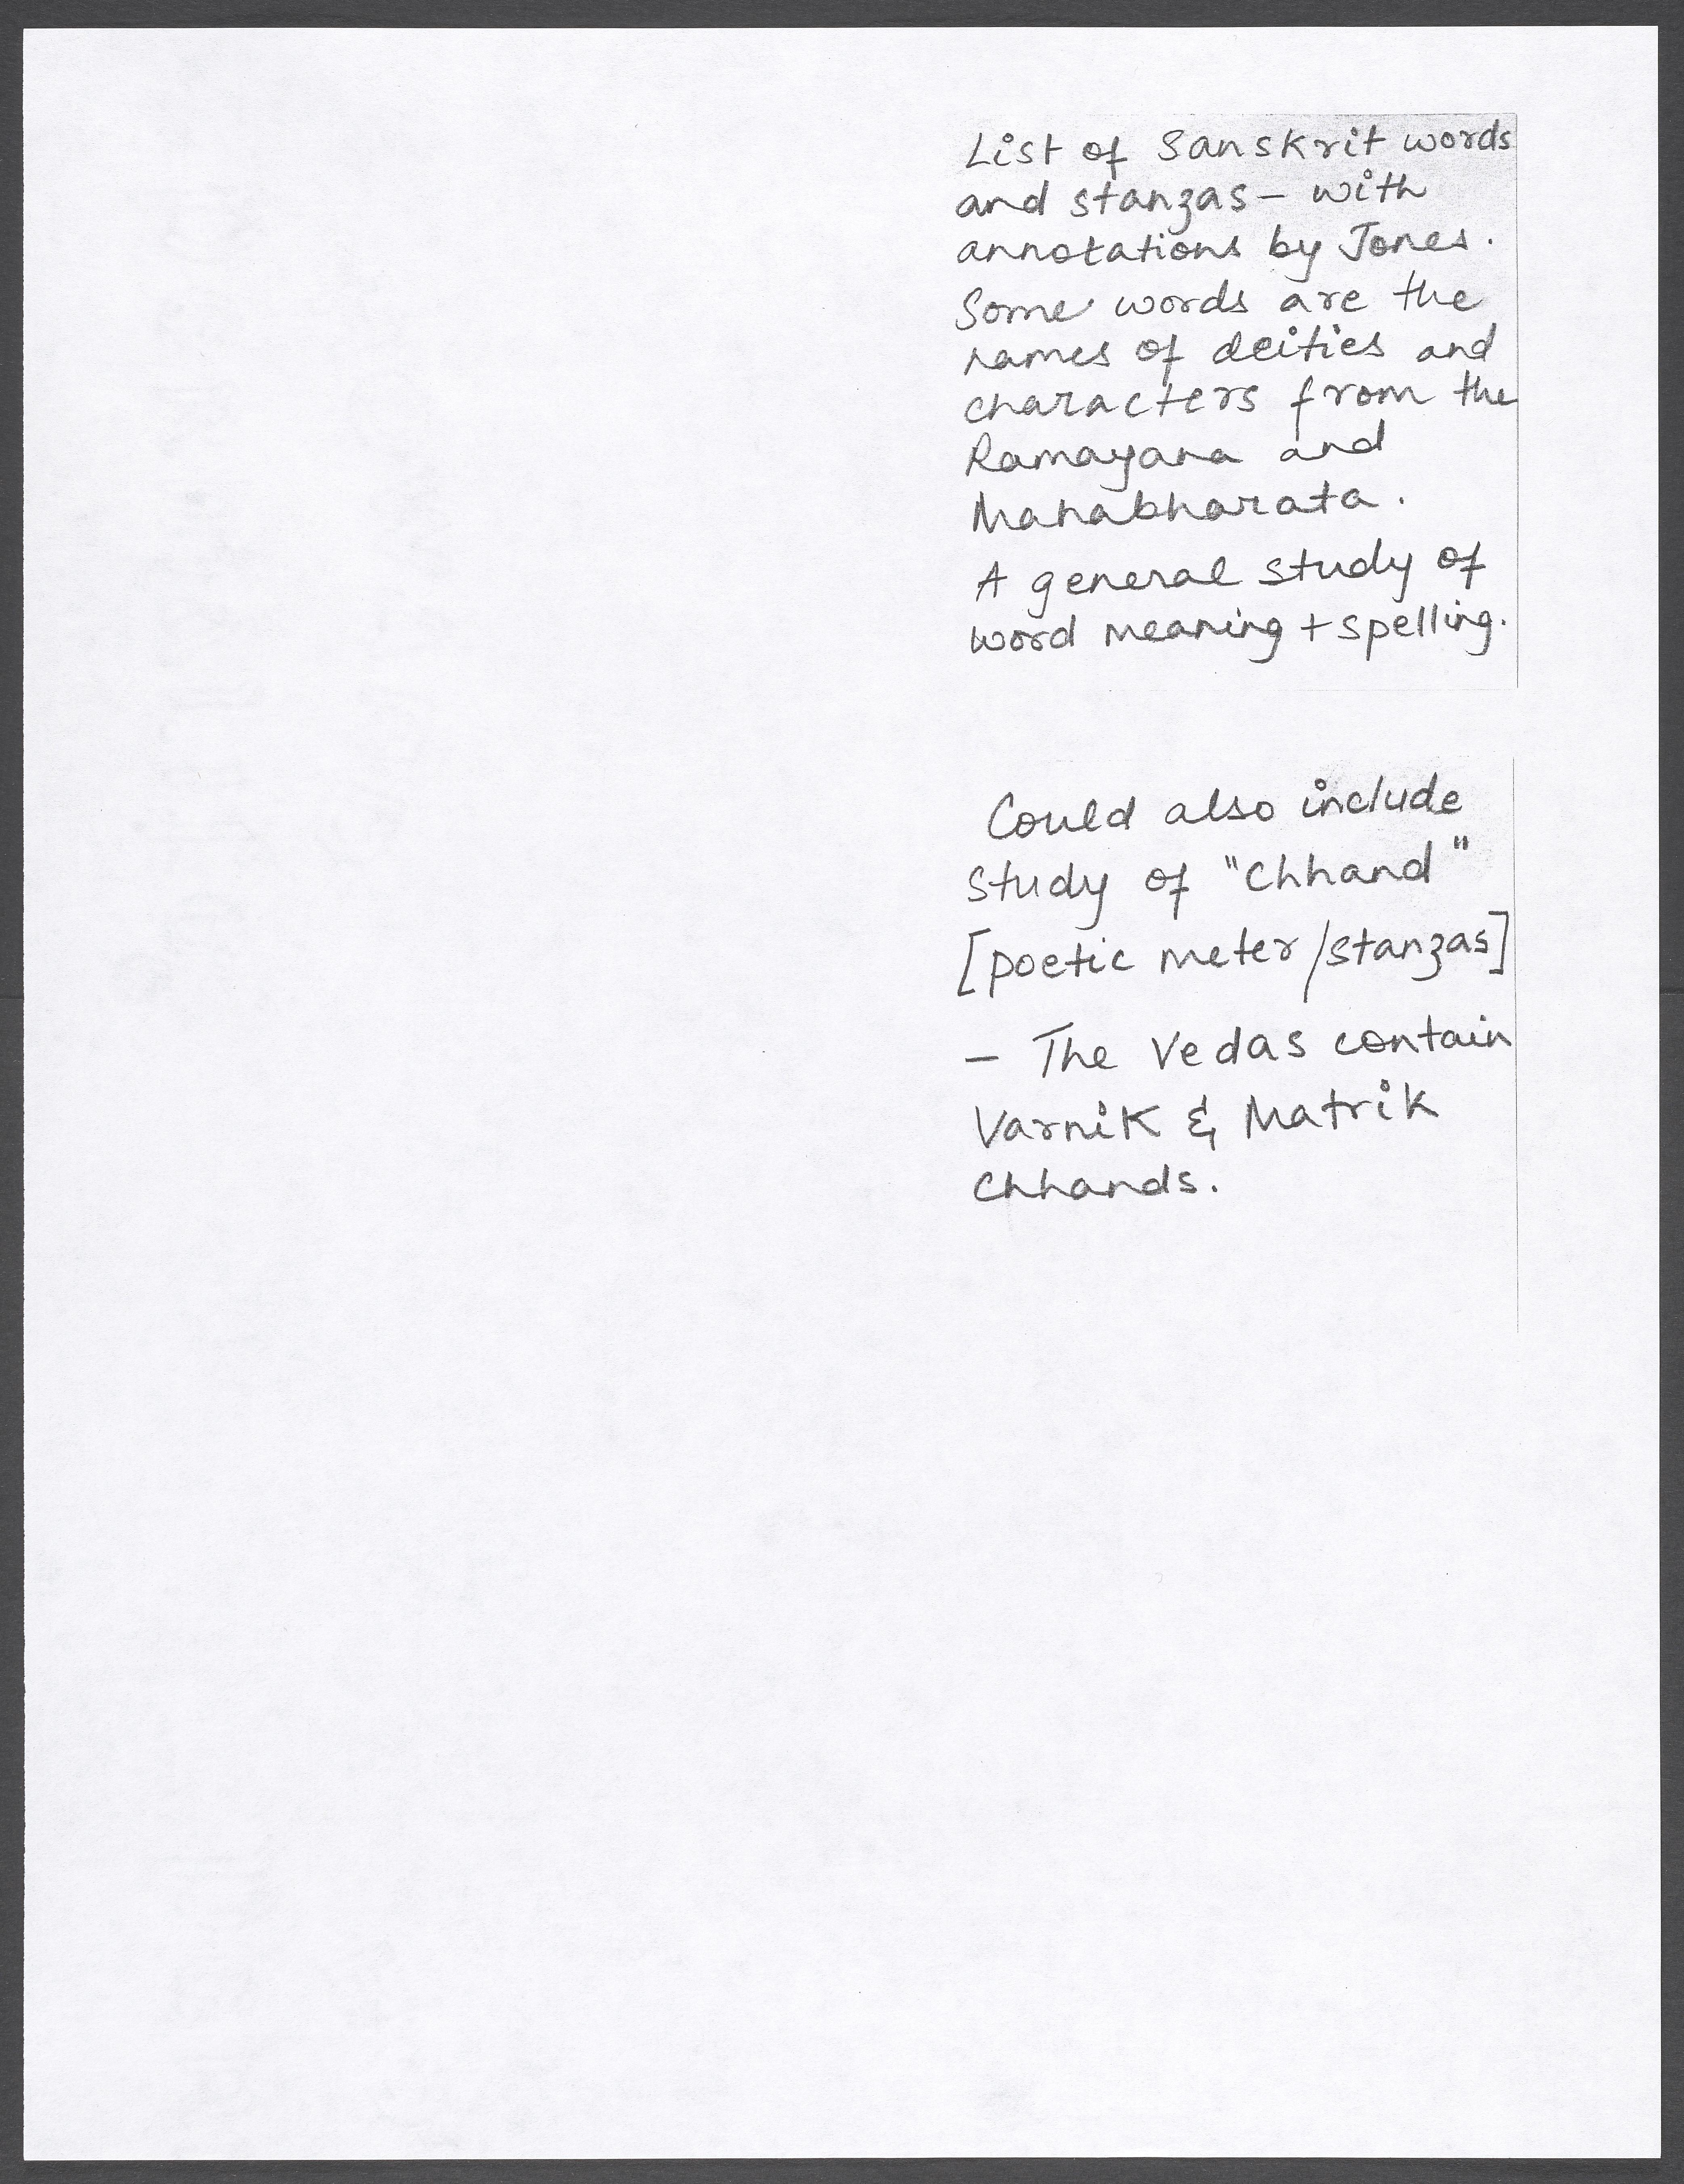 List of Sanskrit words
and stanzas – with
annotations by Jones.
Some words are the
names of deities and
characters from the
Ramayana and
Mahabharata.
A general study of
word meaning + spelling.
Could also include
study of "Chhand"
[poetic meter/stanzas]
– The Vedas contain
Varnik & Matrik
Chhands.